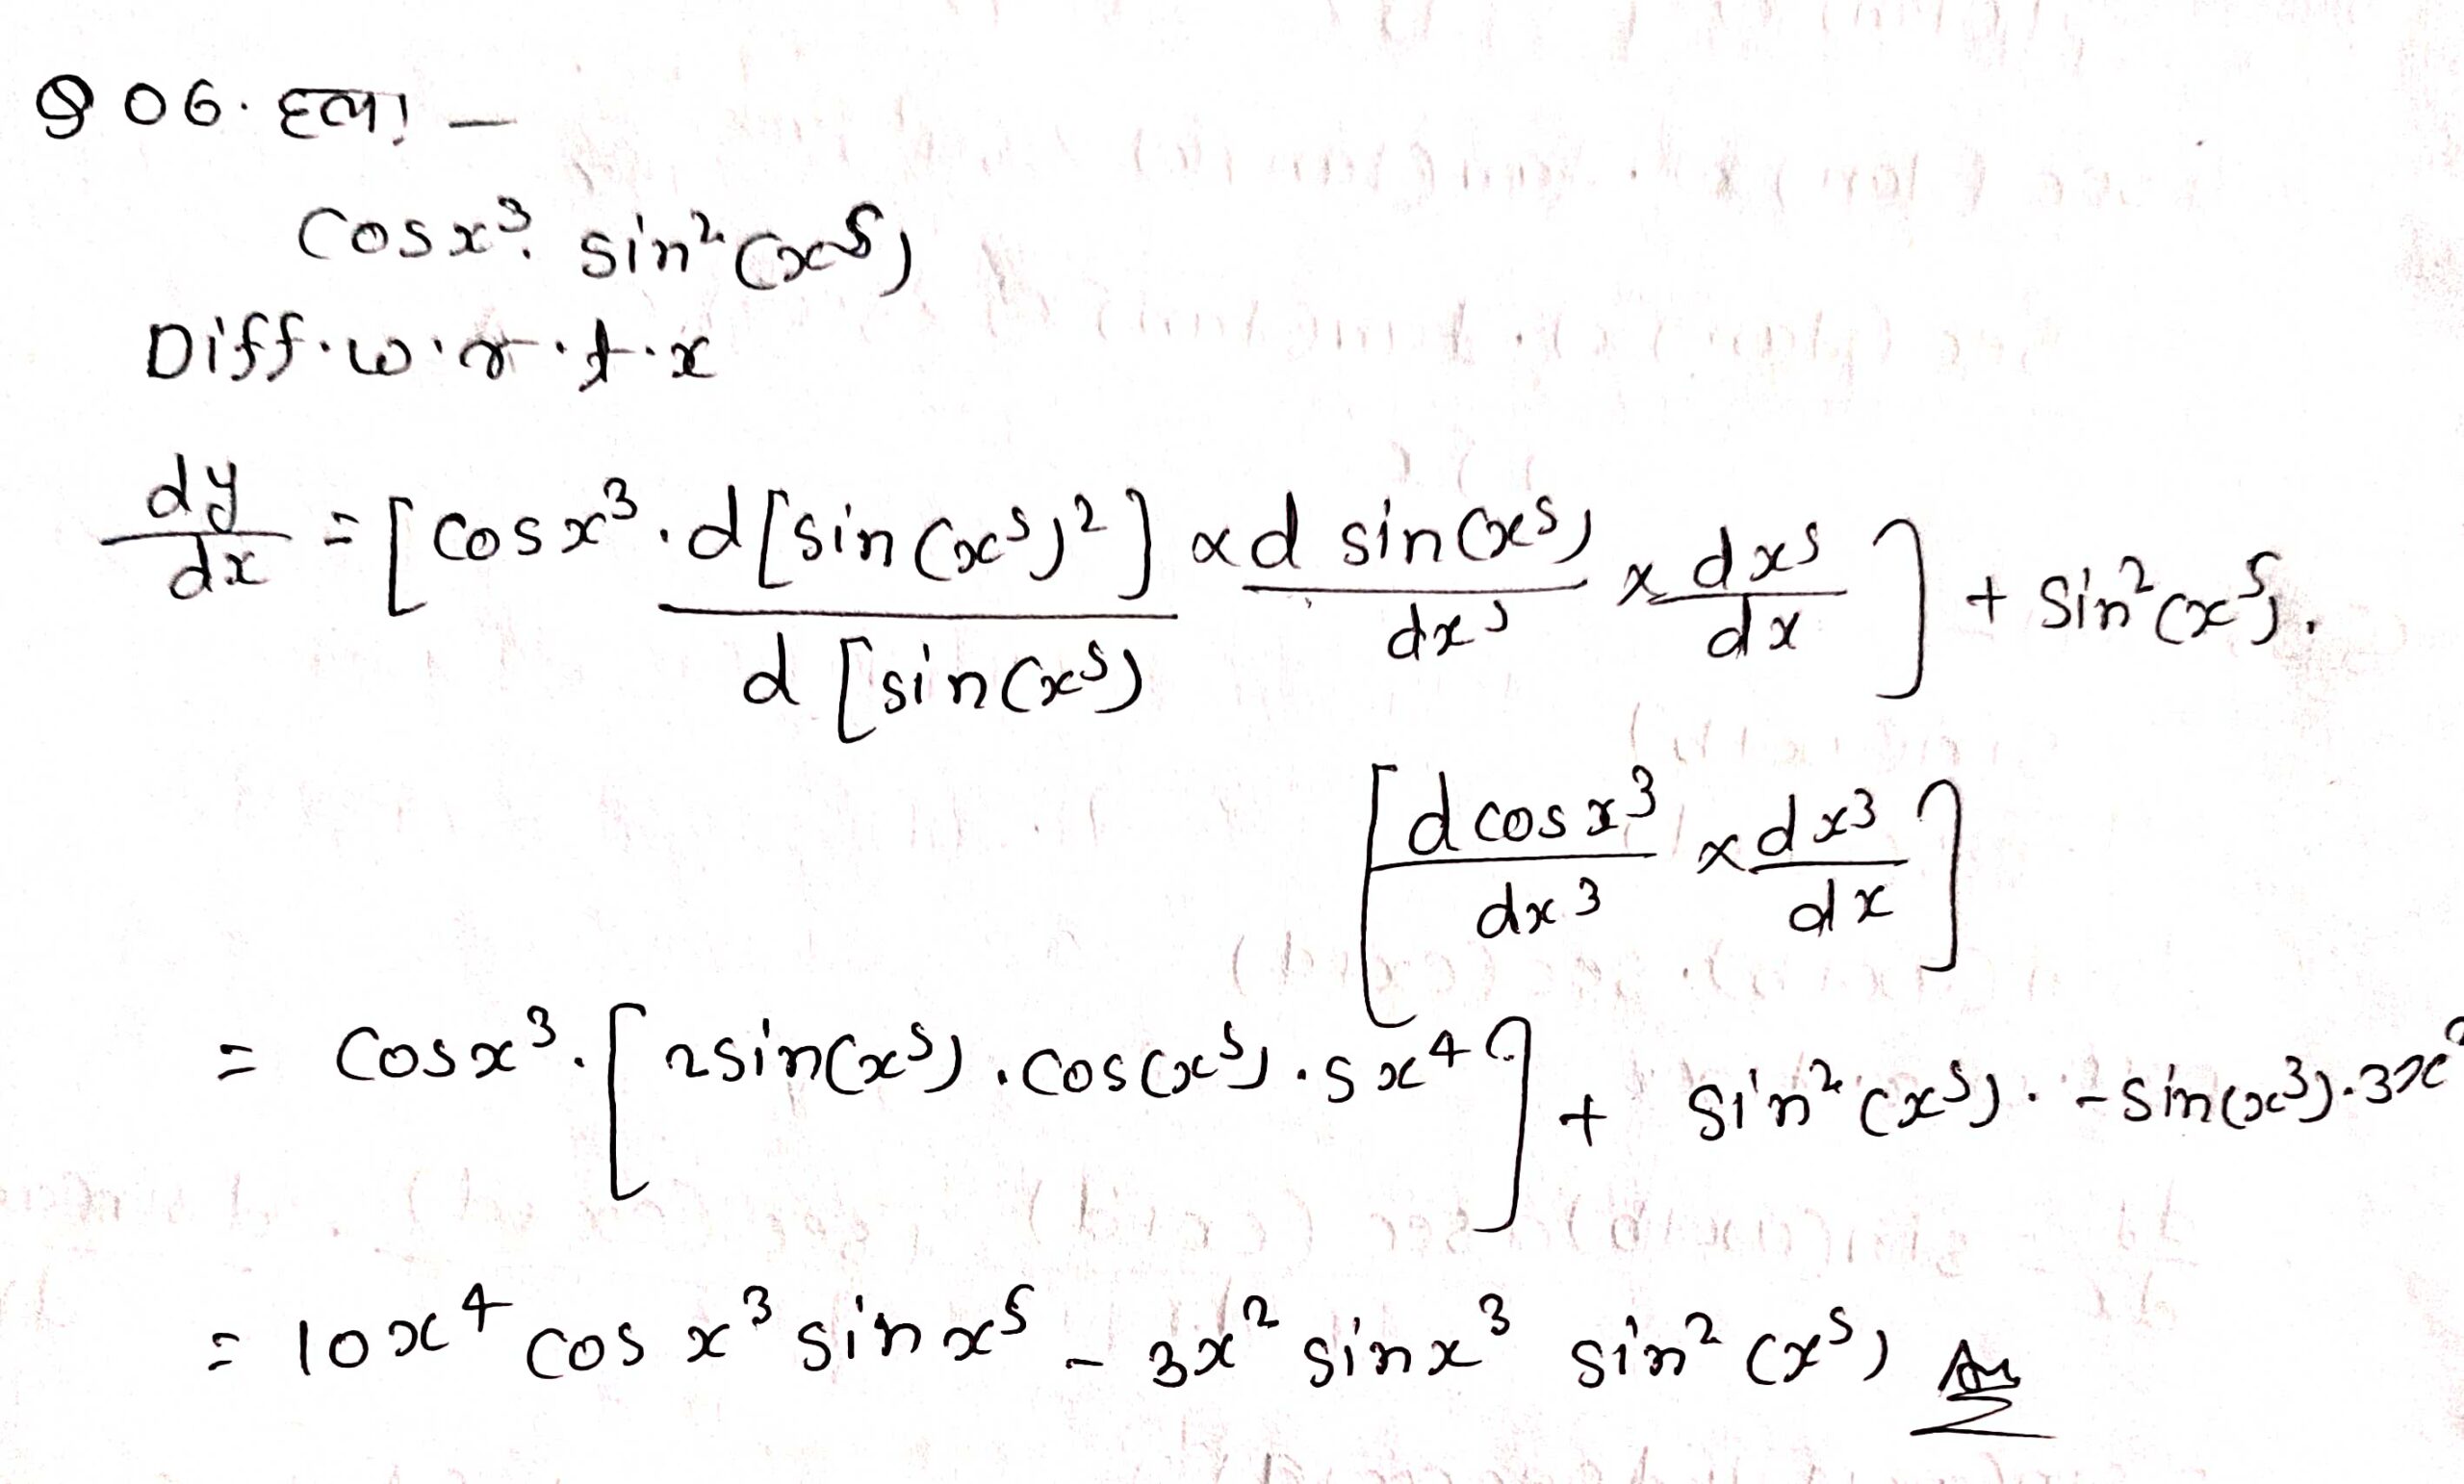 Q 06. हल! —
cosx³. sin²(x⁵)
Diff.w.r.t.x
dy/dx = [cosx³.d[sin(x⁵)²]/d[sin(x⁵) x d sin(x⁵)/dx⁵ x dx⁵/dx] + sin²(x⁵).
[d cosx³/dx³ x dx³/dx]
= cosx³.[2sin(x⁵).cos(x⁵).5x⁴] + sin²(x⁵). -sin(x³).3x²
= 10x⁴ cos x³ sin x⁵ - 3x² sinx³ sin²(x⁵) Ans